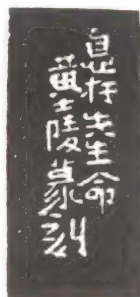 息柯先生命
黃士陵篆刻